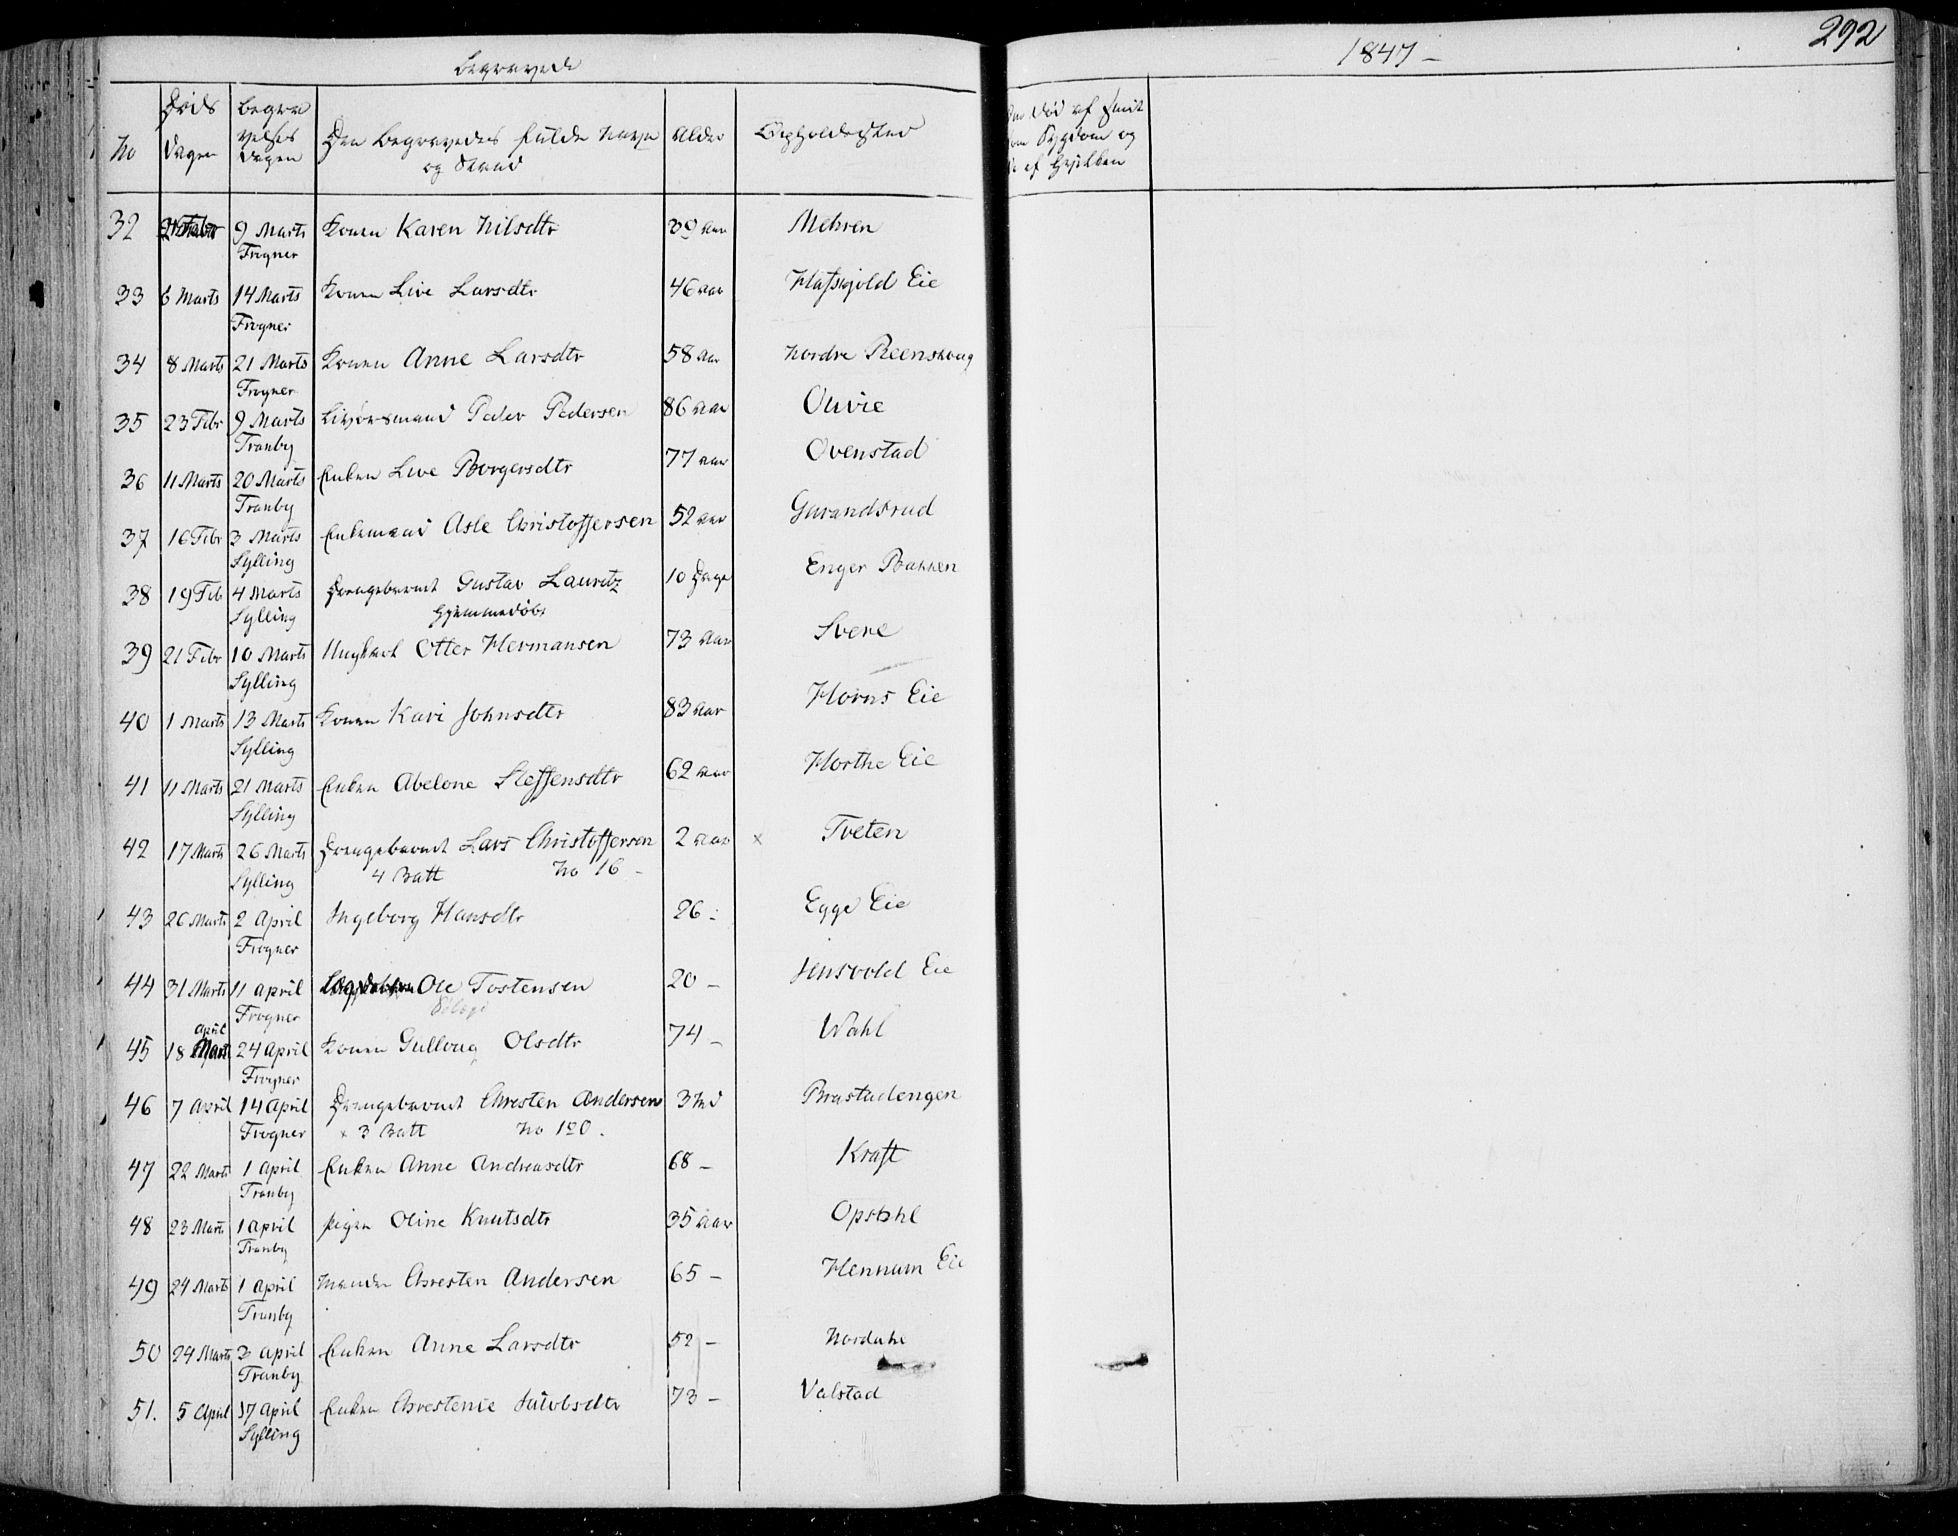 Begravede
1847 -
292
No
Døds Dagen
Begravelses Dagen
Den Begravedes fulde Navn og Stand
Alder
Opholdssted
Død af smitsom Sygdom og af hvilken
32 9 Marts Konen Karen Nilsdtr 39 aar Mehren
Frogner
33 6 Marts 14 Marts Konen Live Larsdtr 46 aar Hafskjold Eie
Frogner
34 8 Marts 21 Marts Konen Anne Larsdtr 58 aar Nordre Reenskoug
Frogner
35 23 Febr 9 Marts Livørsmand Peder Pedersen 86 aar
Tranby
36 11 Marts 20 Marts Enken Live Borgersdtr 77 aar Ovenstad
Tranby
37 16 Febr 3 Marts Enkemand Asle Christoffersen 52 aar Garandsrud
Sylling
38 19 Feb 4 Marts Drengebarnet Gustav Lauritz 10 Dage Enger Bakken
Sylling hjemmedøbt
39 21 Febr 10 Marts Ungkarl Otter Hermansen 73 aar Svere
Sylling
40 1 Marts 13 Marts Konen Kari Johnsdtr 83 aar Horns Eie
Sylling
41 11 Marts 21 Marts Enken Abelone Steffensdtr 62 aar Horthe Eie
Sylling
42 17 Marts 26 Marts Drengebarnet Lars Christoffersen 2 aar x Tveten
Sylling 4 Batt No 16 -
43 26 Marts 2 April Ingeborg Hansdtr 26 : Egge Eie
Frogner
44 31 Marts 11 April Ole Tostensen 20 - Jensvold Eie
Frogner
April
45 18 Marts 24 April Konen Gulloug Olsdtr 74 - Wahl
Frogner
46 7 April 14 April Drengebarnet Christen Andersen 3 Md Brastadengen
Frogner x 3 Batt No 120 .
47 22 Marts 1 April Enken Anne Andreasdtr 68 - Kraft
Tranby
48 23 Marts 1 April Pigen Oline Knutsdtr 35 aar Opsahl
Tranby
49 24 Marts 1 April Manden Christen Andersen 65 - Hennum Eie
Tranby
50 24 Marts 3 April Enken Anne Larsdtr 52 - Nordahl
Tranby
51. 5 April 17 April Enken Christenie Jacobsdtr 73 - Valstad
Sylling